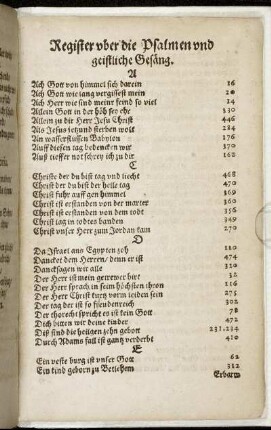 Register vber die Psalmen vnd
geistliche Gesäng.
A
Ach Gott von himmel sich darein 16
Ach Gott wie lang vergissest mein 20
Ach Herr wie sind meiner feind so viel 14
Allein Gott in der höh sey ehr 330
Allein zu dir Herr Jesu Christ 446
Als Jesus ietzund sterben wolt 284
An wasserflüssen Babylon 176
Auff diesen tag bedencken wir 162
Auß tieffer not schrey ich zu dir
C
Christe der du bist tag vnd liecht 468
Christ der du bist der helle tag 470
Christ fuhr auff gen himmel 369
Christ ist erstanden von der marter 360
Christ ist erstanden von dem todt 356
Christ lag in todes banden 349
Christ vnser Herr zum Jordan kam 270
D
Da Israel aus Egypten zoh 110
Dancket dem Herren/ denn er ist 474
Dancksagen wir alle 310
Der Herr ist mein getrewer hirt 38
Der Herr sprach in seim höchsten thron 116
Der Herr Christ kurtz vorm leiden sein 275
Der tag der ist so freudenreich 302
Der thorecht spricht es ist kein Gott 78
Dich bitten wir deine kinder 472
Diß sind die heilgen zehn gebott 231.234
Durch Adams fall ist gantz verderbt 410
E
Ein veste burg ist vnser Gott 62
Ein kind geborn zu Betlehem 312
Erbarm